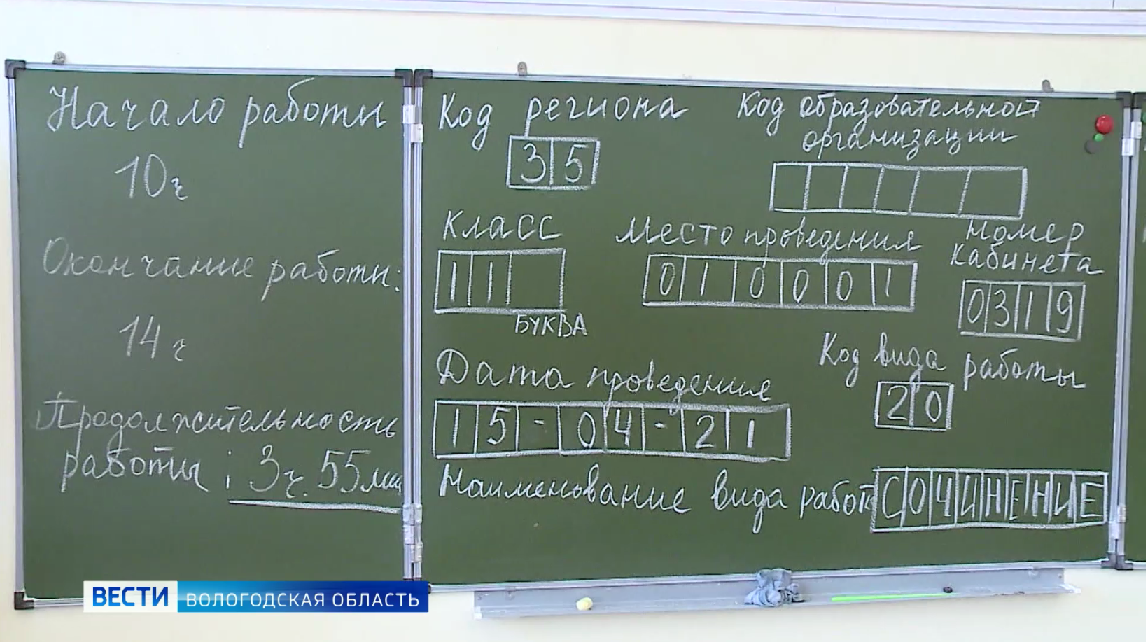 Начало работы
10ч
Окончание работы:
14ч
Продолжительность
работы: 3ч. 55мин
Код региона
35
Код образовательной
организации
Класс
11
БУКВА
Место проведения
010001
Номер
кабинета
0319
Дата проведения
15-04-21
Код вида работы
20
Наименование вида работ СОЧИНЕНИЕ
ВЕСТИ ВОЛОГОДСКАЯ ОБЛАСТЬ